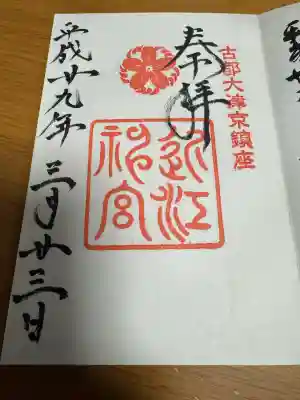 奉拝
古都大津京鎮座
近江
神宮
平成廿九年三月廿三日